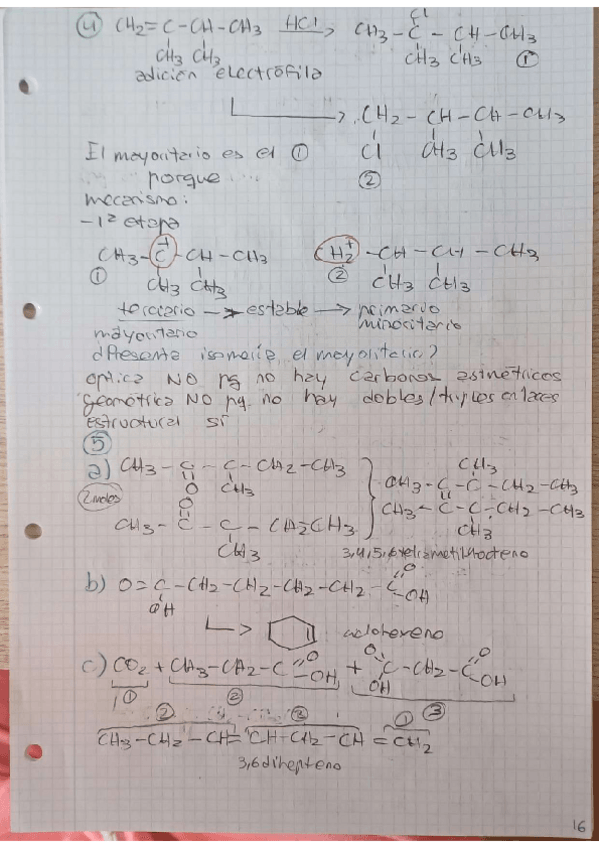 ④ CH2=C-CH-CH3 HCl → CH3-C-CH-CH3
Cl
CH3 CH3 CH3 CH3 ①
adición electrófila
→ CH2-CH-CH-CH3
El mayoritario es el ① Cl CH3 CH3
porque.... ②
mecanismo:
-1ª etapa
CH3-C-CH-CH3 CH2+-CH-CH-CH3
+
① CH3 CH3 ② CH3 CH3
terciario → estable → primario
mayoritario minoritario
¿Presenta isomería el mayoritario?
óptica NO pq no hay carbonos asimétricos
geométrica NO pq. no hay dobles/triples enlaces
estructural sí
⑤
a) CH3-C-C-CH2-CH3 CH3
O CH3 CH3-C-C-CH2-CH3
2moles O CH3-C-C-CH2-CH3
CH3-C-C-CH2CH3 CH3
CH3 3,4,5,6
b) O=C-CH2-CH2-CH2-CH2-C O OH
OH
→ ciclohexeno
c) CO2 + CH3-CH2-C O OH + O C-CH2-C O OH
OH
① ② ③
② ③ ①
CH3-CH2-CH=CH-CH2-CH=CH2
3,6 dihepteno
16